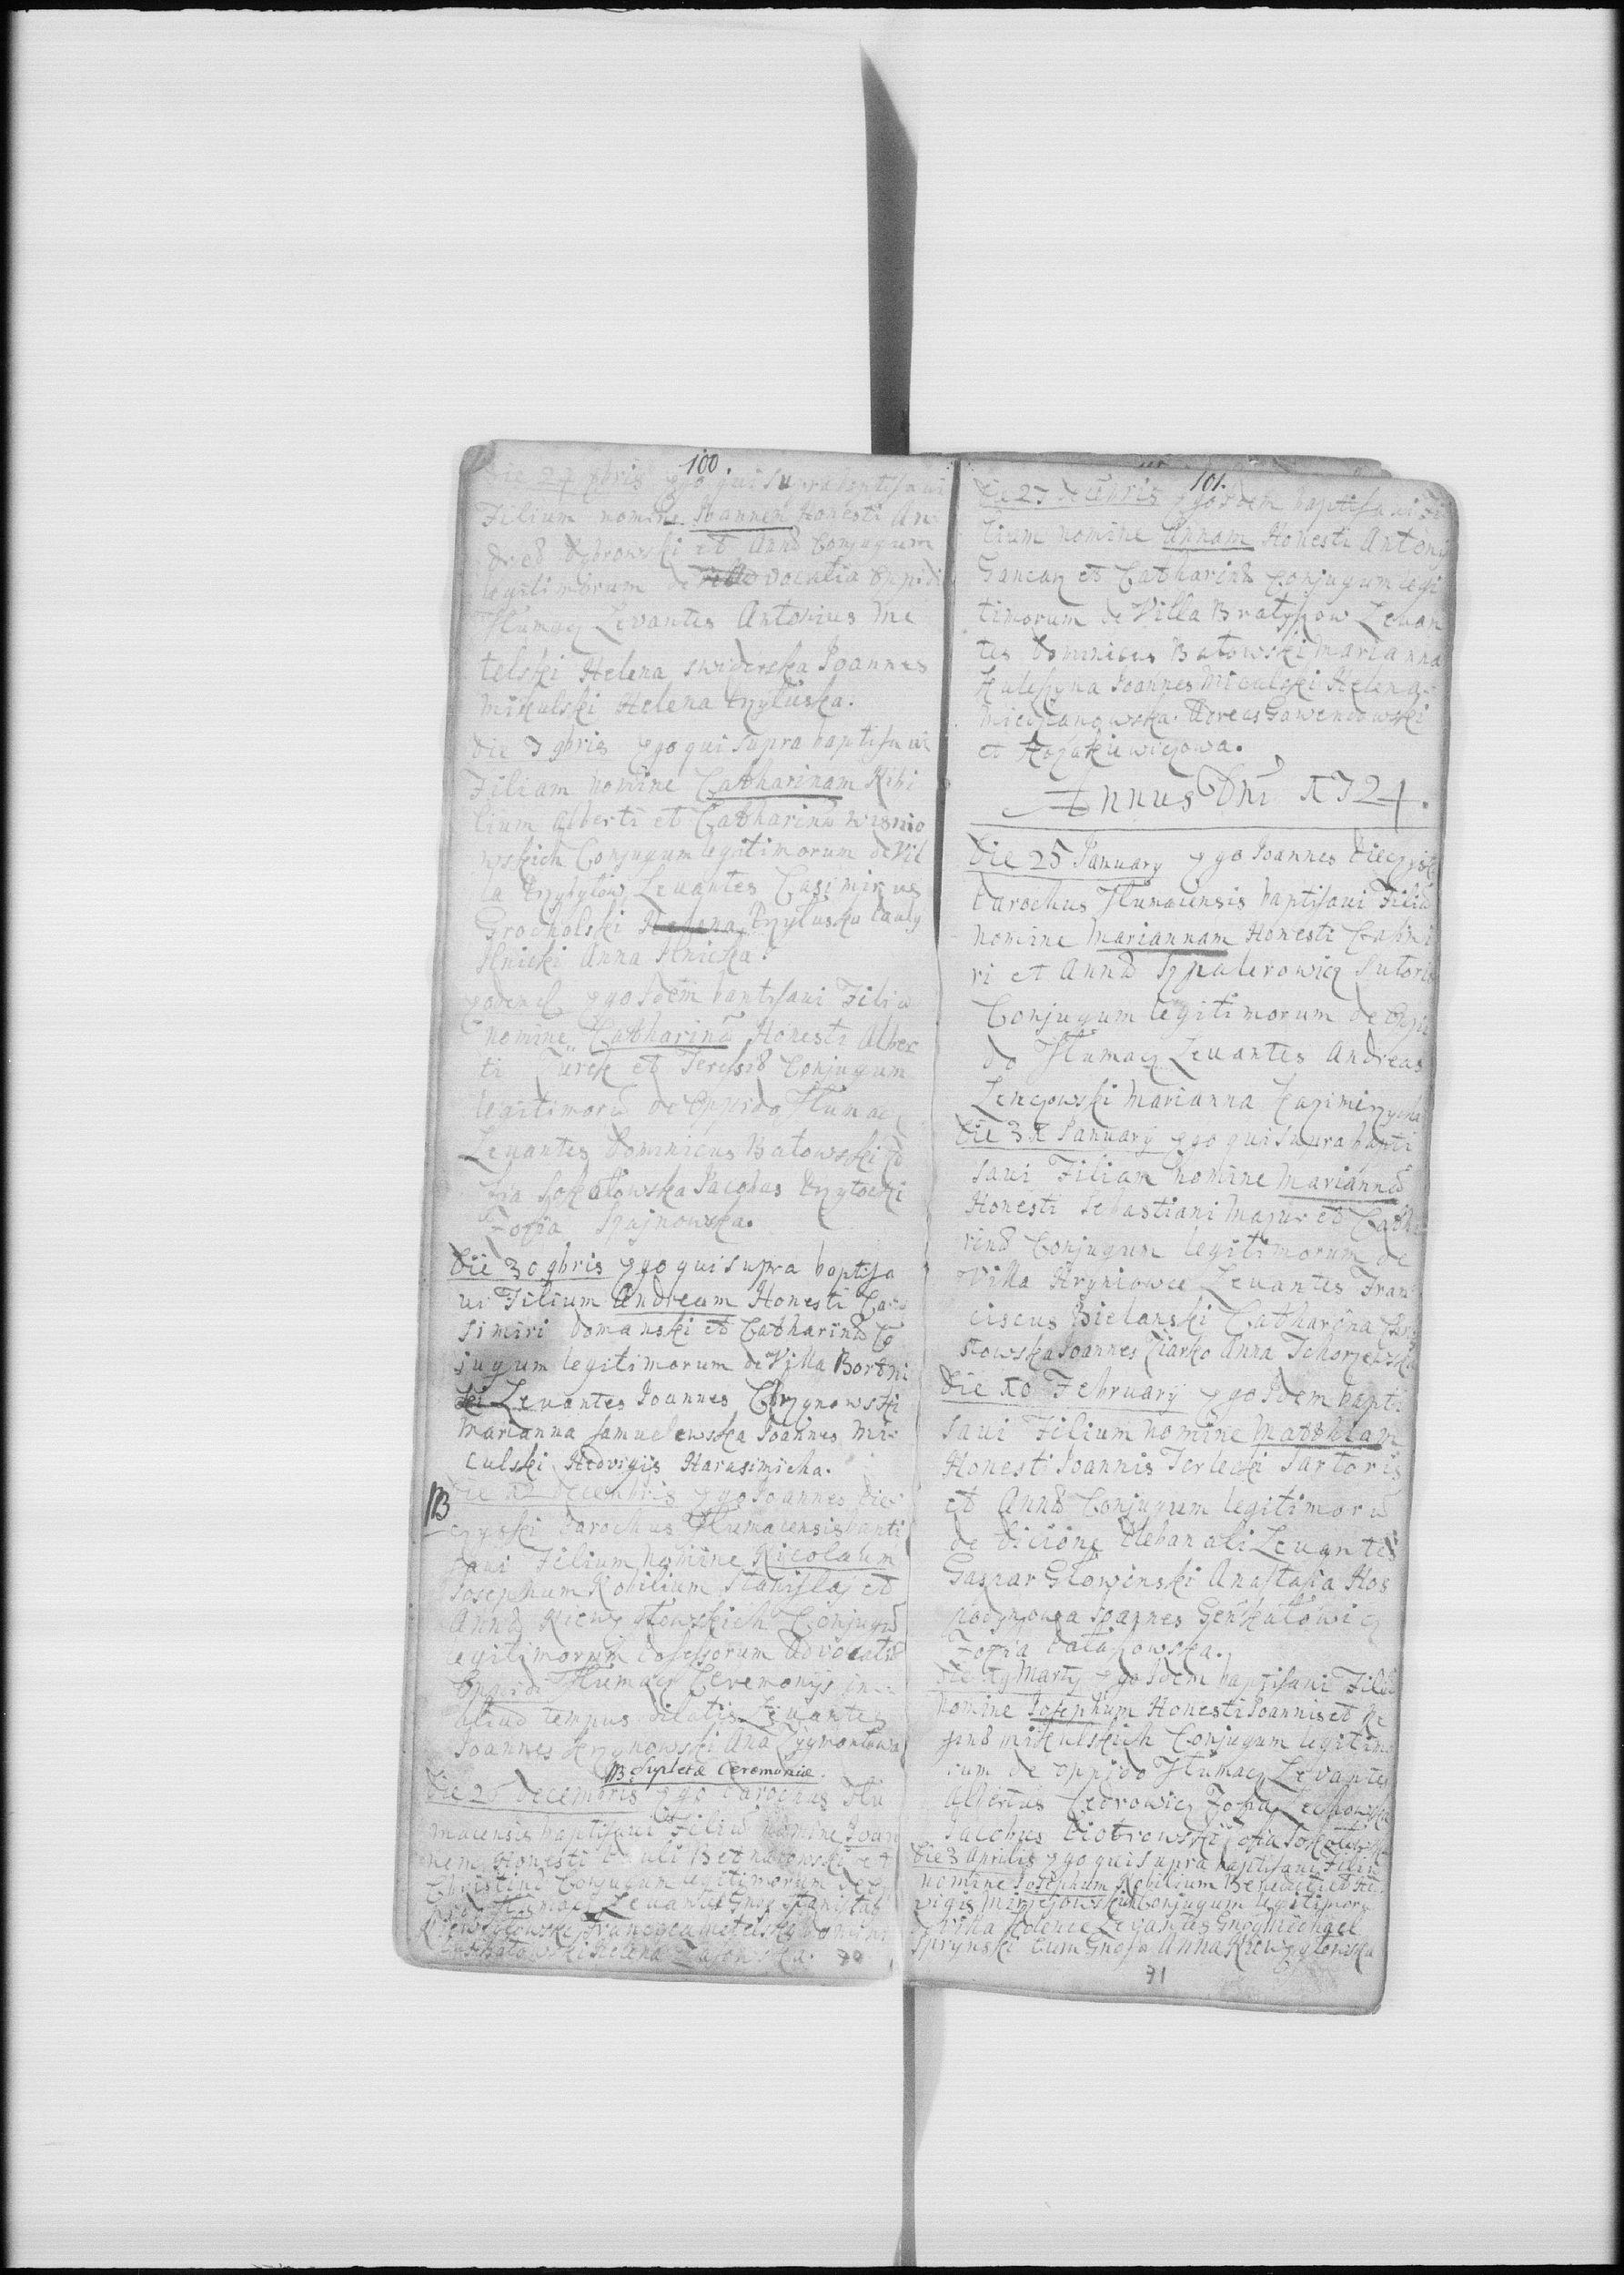 100.
Die 24 xbris Ego qui supra baptisavi
Filium nomine Ioannem Honesti An-
dreæ Dybrowski et Annæ Conjugum
legitimorum de Advocatia Oppidi
Tłumacz Levantes Antonius Me
telski Helena Swiderska Joannes
Mikulski Helena Przyłuska.
Die 7 9bris Ego qui supra baptisavi
Filiam nomine Catharinam Nobi
lium Alberti et Catharinæ Wisnio
wskich Conjugum legitimorum de Vil
la Przybyłow Levantes Casimirus
Grocholski Helena Przyłuska Pauly
Ilnicki Anna Ilnicka.
Eodem Ego Idem baptisavi Filiã
nomine Catharinã Honesti Alber
ti Turek et Teresiæ Conjugum
legitimorũ de Oppido Tłumacz
Levantes Dominicus Batowski Zo
fia Sokałowska Jacobus Przytocki
Zofia Szajnowska.
Die 30 9bris Ego qui supra baptisa
vi Filium Andream Honesti Ca-
simiri Domanski et Catharinæ Cõ
jugum legitimorum de Villa Bortni
ki Levantes Joannes Chrzynowski
Marianna Samuelewska Joannes Mi-
culski Hedvigis Harasimicha.
NB
Die 12 Decembris Ego Joannes Die
czyski Parochus Tłumacensis bapti
savi Filium Nomine Nicolaum
Josephum Nobilium Stanislaj et
Annæ Kiewzstowskich Conjugũ
legitimorum Possessorum Advocatiæ
Oppidi Tłumacz Ceremonijs in
aliud tempus dilatis Levantes
Joannes Skrzynowski Ana Zygmontowa
NB Supletæ Ceremoniæ.
Die 26 Decembris Ego Parochus Tłu
macensis baptisavi Filiũ Nomine Joan
nem Honesti Pauli Bednarowski et
Christinæ Conjugum legitimorum de Op
pido Tłumacz Levantes Gnos Stanislas
Francisca Metelska Domini
cus Batowski Helena
70
101.
Die 27 Decembris Ego Idem baptisavi Fi
liam nomine Annam Honesti Antonij
Gancarz et Catharinæ Conjugum legi
timorum de Villa Bratyszow Levan
tes Dominicus Batowski Marianna
Kuleszyna Joannes Miculski Helena
Miedzianowska. Adreas Gawendowski
et Kozakiewiczowa.
Annus Dñi 1724.
Die 25 January Ego Joannes Dieczyski
Parochus Tłumacensis baptisavi Filiã
nomine Mariannam Honesti Casimi
ri et Annæ Szpalerowicz Sutoris
Conjugum legitimorum de Oppi
do Tłumacz Levantes Andreas
Lenczowski Marianna Kazimirzycha
Die 31 January Ego qui supra bapti
savi Filiam nomine Mariannã
Honesti Sebastiani Mazur et Catha
rinæ Conjugum legitimorum de
Villa Hryniowce Levantes Fran
ciscus Bielanski Catharina Chrzą
stowska Joannes Ciarko Anna Tchorzewska
Die 10 February Ego Idem bapti
savi Filium nomine Matthiam
Honesti Joannis Terlecki Sartoris
et Annæ Conjugum legitimorũ
de Dicione Plebanali Levantes
Gaspar Głowinski Anastasia Hos
podynowa Joannes Gęskałowicz
Zofia Pataszowska.
Die 19 Marty Ego Idem baptisavi Filiũ
Nomine Josephum Honesti Joannis et Re
ginæ Mikulskich Conjugum legitimo
rum de Oppido Tłumacz Levantes
Albertus Cedrowicz Zofia Lechowska
Jacobus Piotrowski Zofia Sokołowska
Die 3 Aprilis Ego qui supra baptisavi Filiũ
nomine Josephum Nobilium Benedicti et Hed
vigis Mirzejowskich Conjugum legitimorũ
Villa Levantes Gnosy Michael
Sprynski cum Gnosa Anna Kiewzytowska
71